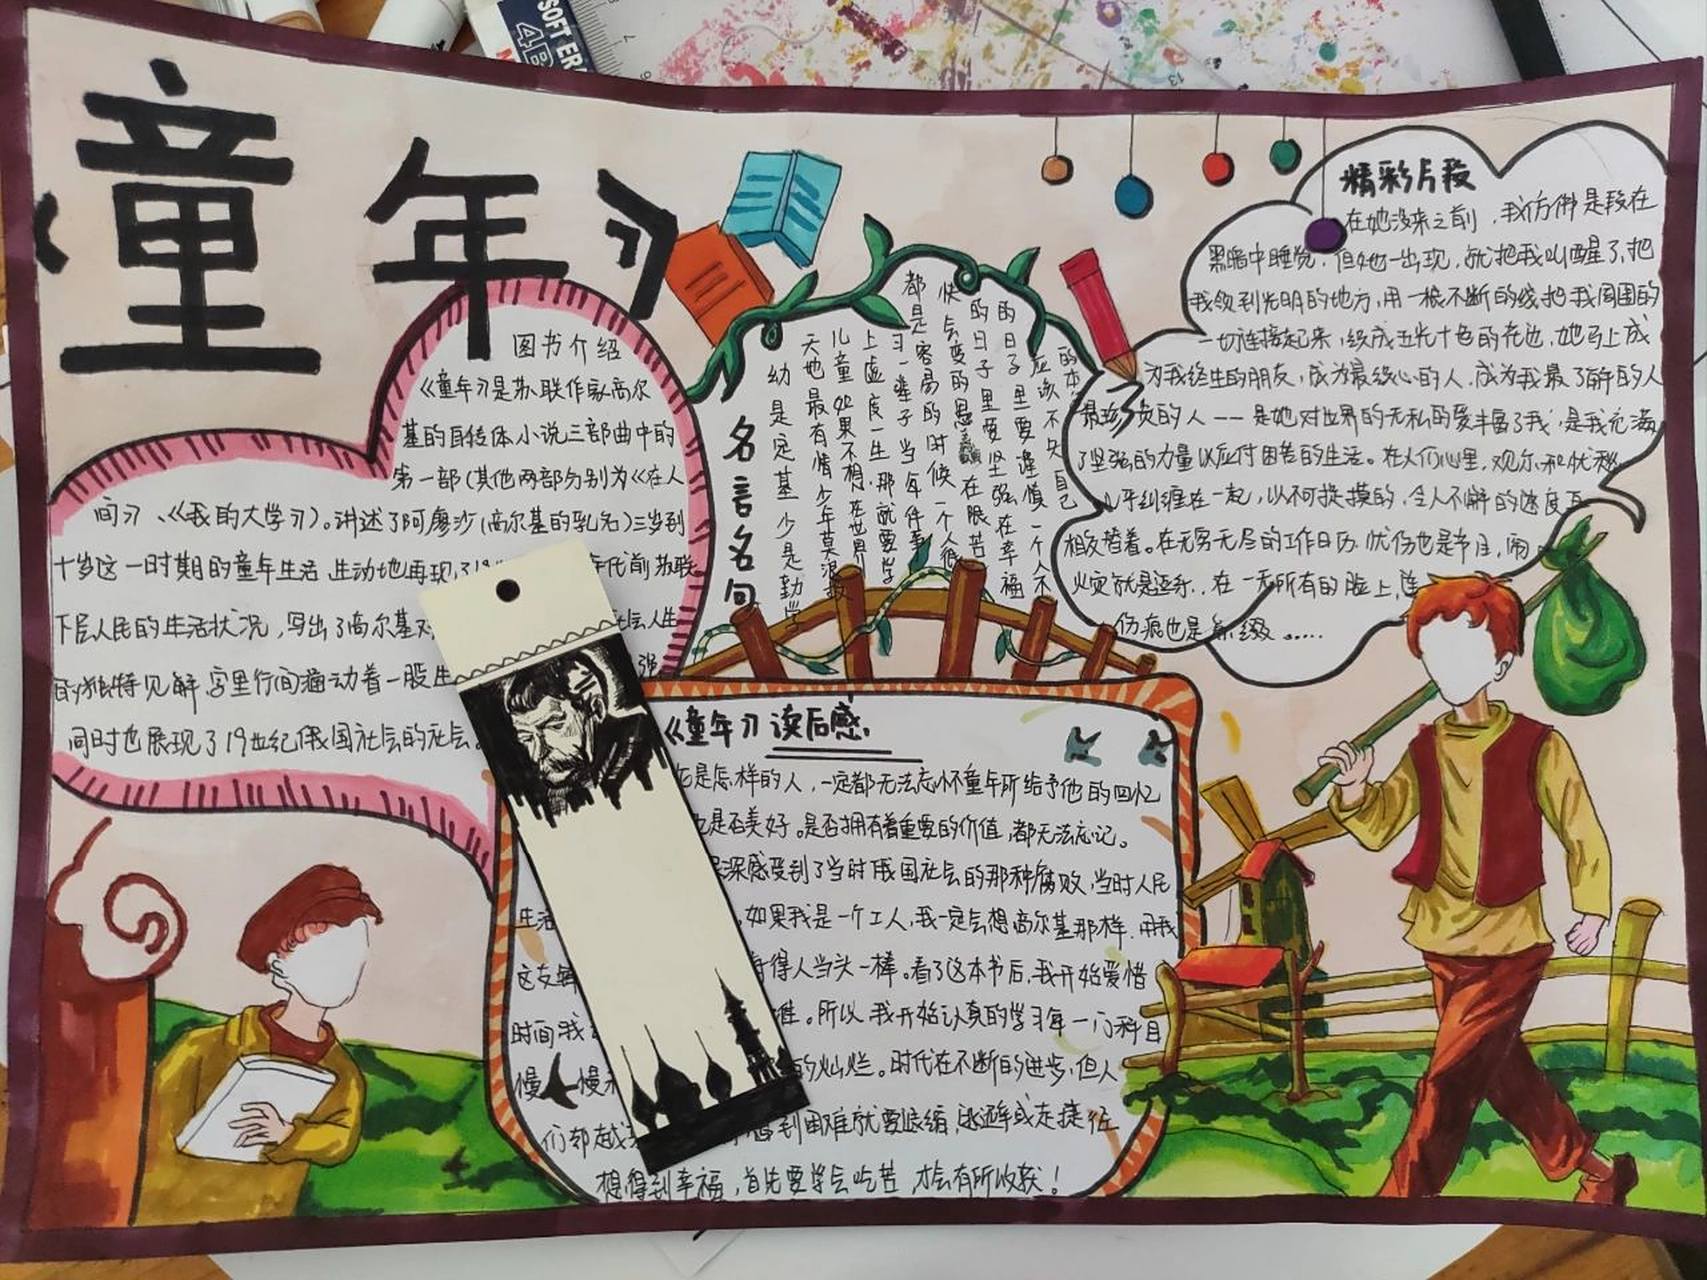 SOFT ER
4B
《童年》
图书介绍
《童年》是苏联作家高尔
基的自传体小说三部曲中的
第一部(其他两部分别为《在人
间》、《我的大学》)。讲述了阿廖沙(高尔基的乳名)三岁到
十岁这一时期的童年生活 生动地再现了19 年代前苏联
下层人民的生活状况,写出了高尔基对 社会人生
的独特见解 字里行间涌动着一股生 强
同时也展现了19世纪俄国社会的社会
名言名句
幼是定基 少是勤学
天地最有情 少年莫浪
儿童如果不想在世界
上虚度一生 那就要学
习一辈子 当年件事
都是容易的时候一个人很
快会变的愚蠢 在艰苦
的日子里要坚强 在幸福
的日子里要谨慎 一个人不
应该不失自己
的本
精彩片段
在她没来之前,我仿佛是段在
黑暗中睡觉,但她一出现,就把我叫醒了,把
我领到光明的地方,用一根不断的线把我周围的
一切连接起来,织成五光十色的花边,她马上成
为我终生的朋友,成为最终心的人,成为我最了解的人
最珍贵的人——是她对世界的无私的爱丰富了我,是我充满
了坚强的力量以应付困苦的生活。在人们心里,观尔和忧愁
几乎纠缠在一起,以不可捉摸的,令人不解的速度互
相交替着。在无穷无尽的工作日历,忧伤也是节日,闹
火灾就是逗乐..在一无所有的脸上,连
伤疤也是 缀.....
《童年》读后感.
是怎样的人,一定都无法忘怀童年所给予他的回忆
是否美好。是否拥有着重要的价值,都无法忘记。
深感受到了当时俄国社会的那种腐败,当时人民
生活 ,如果我是一个工人,我一定会想高尔基那样,用我
这支 得人当头一棒。看了这本书后,我开始爱惜
时间我 准。所以,我开始认真的学习每一门科目
慢慢 的灿烂。时代在不断的进步,但人
们却越 到困难就要退缩,逃避或走捷径
想得到幸福,首先要学会吃苦,才会有所收获!